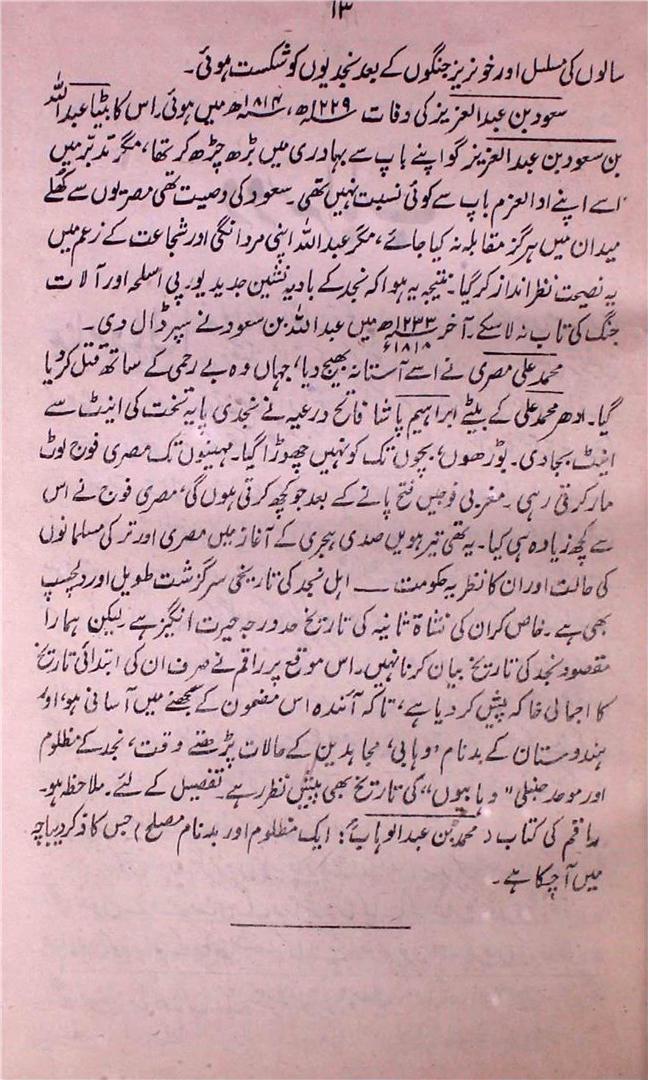 ۱۳
سالوں کی مسلسل اور خونریز جنگوں کے بعد نجدیوں کو شکست ہوئی۔
سعود بن عبدالعزیز کی وفات ۱۲۲۹ھ، ۱۸۱۴ھ میں ہوئی۔ اس کا بیٹا عبداللہ
بن سعود بن عبدالعزیز گو اپنے باپ سے بہادری میں بڑھ چڑھ کر تھا، مگر تدبّر میں
اسے اپنے اولوالعزم باپ سے کوئی نسبت نہیں تھی۔ سعود کی وصیت تھی مصریوں سے کھُلے
میدان میں ہرگز مقابلہ نہ کیا جائے، مگر عبداللہ اپنی مردانگی اور شجاعت کے زعم میں
یہ نصیحت نظر انداز کر گیا۔ نتیجہ یہ ہوا کہ نجد کے بادیہ نشین جدید یورپی اسلحہ اور آلات
جنگ کی تاب نہ لا سکے۔ آخر ۱۲۳۳ھ ۱۸۱۸ء میں عبداللہ بن سعود نے سپر ڈال دی۔
محمد علی مصری نے اسے آستانہ بھیج دیا، جہاں وہ بے رحمی کے ساتھ قتل کر دیا
گیا۔ ادھر محمد علی کے بیٹے ابراہیم پاشا فاتح درعیہ نے نجدی پایہ تخت کی اینٹ سے
اینٹ بجا دی۔ بوڑھوں، بچوں تک کو نہیں چھوڑا گیا۔ مہینوں تک مصری فوج لوٹ
مار کرتی رہی۔ مغربی فوجیں فتح پانے کے بعد جو کچھ کرتی ہوں گی، مصری فوج نے اس
سے کچھ زیادہ ہی کیا۔ یہ تھی تیرھویں صدی ہجری کے آغاز میں مصری اور ترکی مسلمانوں
کی حالت اور ان کا نظریہ حکومت ــــ اہل نجد کی تاریخی سرگزشت طویل اور دلچسپ
بھی ہے۔ خاص کر ان کی نشاۃ ثانیہ کی تاریخ حد درجہ حیرت انگیز ہے لیکن ہمارا
مقصود نجد کی تاریخ بیان کرنا نہیں۔ اس موقع پر راقم نے صرف ان کی ابتدائی تاریخ
کا اجمالی خاکہ پیش کر دیا ہے، تاکہ آئندہ اس مضمون کے سمجھنے میں آسانی ہو، اور
ہندوستان کے بدنام 'وہابی' مجاہدین کے حالات پڑھتے وقت، نجد کے مظلوم
اور موحد حنبلی "وہابیوں" کی تاریخ بھی پیشِ نظر رہے۔ تفصیل کے لئے۔ ملاحظہ ہو۔
راقم کی کتاب (محمدؒ بن عبدالوہاب: ایک مظلوم اور بدنام مصلح) جس کا ذکر دیباچہ
میں آ چکا ہے۔